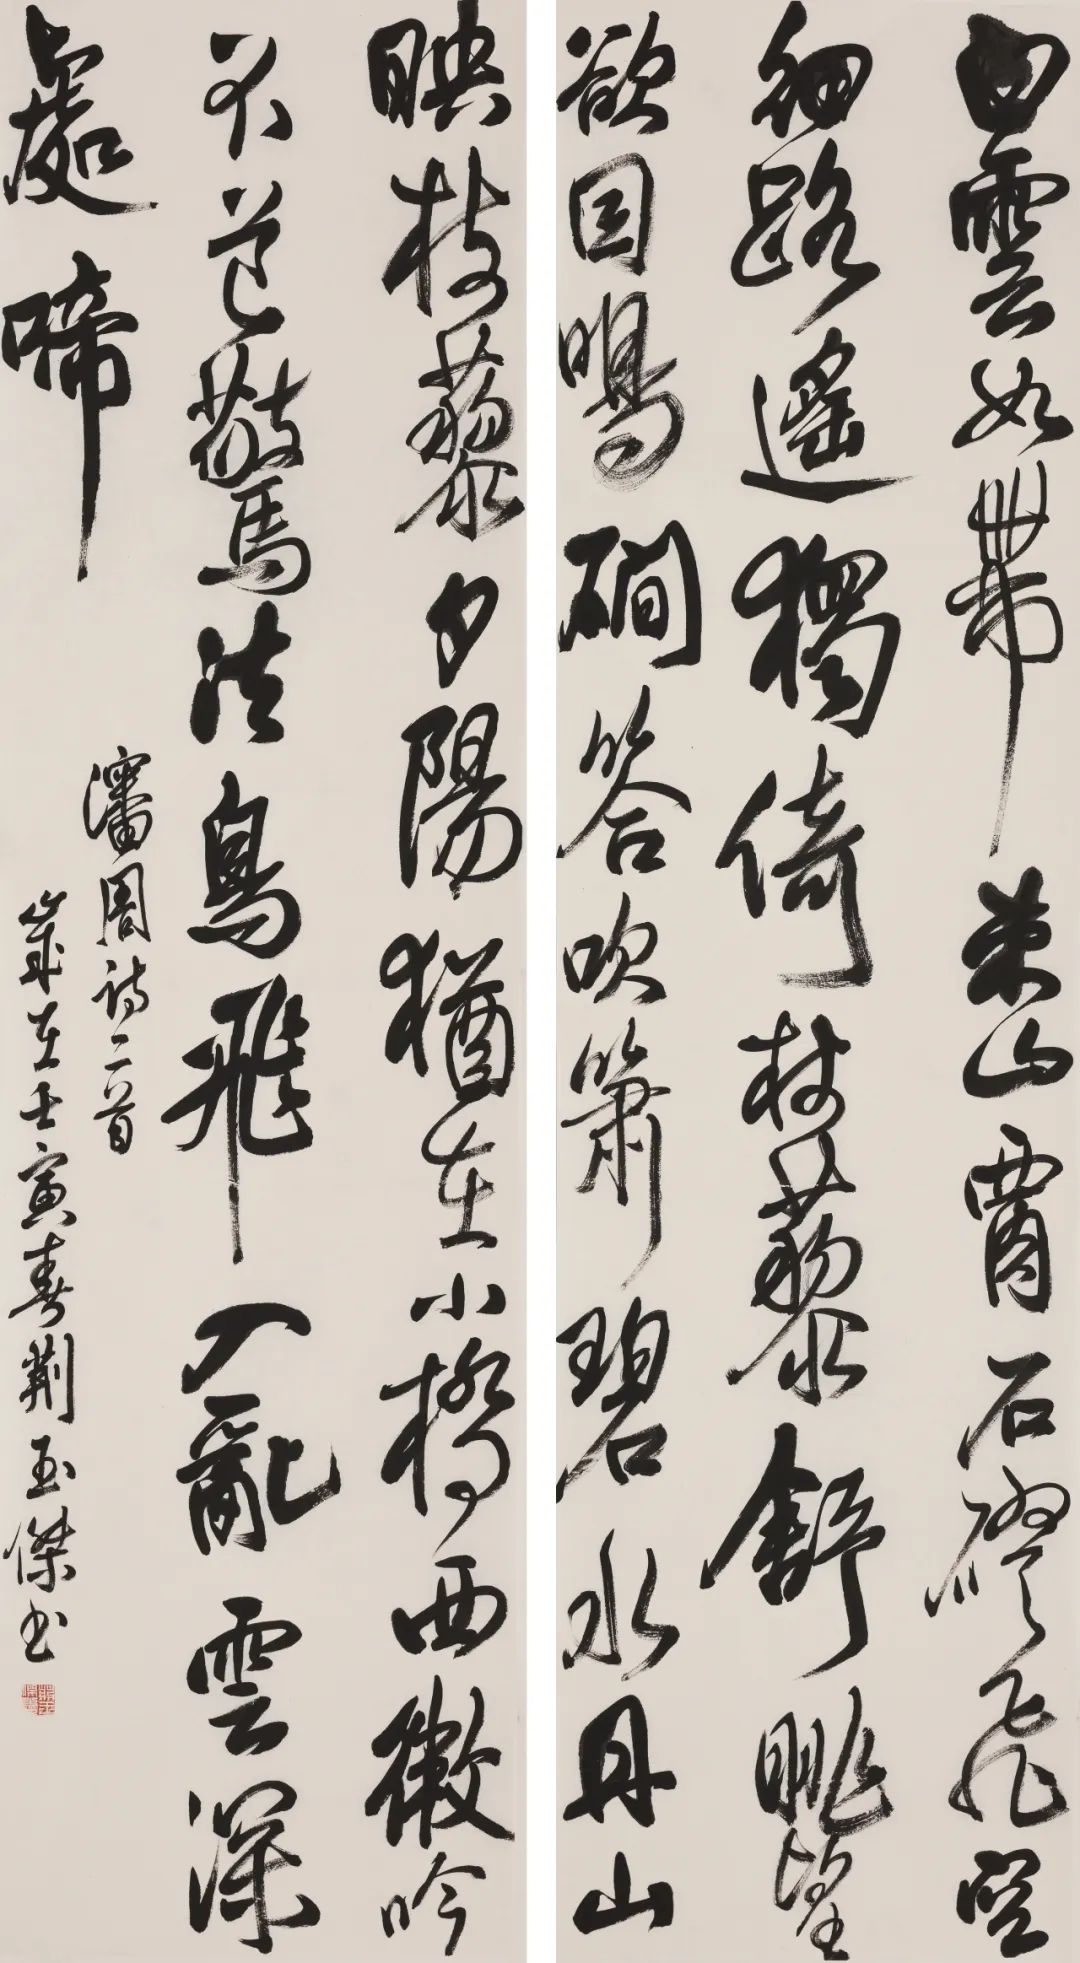 白雲如帶束山腰石磴飛空
細路遙獨倚杖藜舒眺望
欲因鳴磵答吹簫碧水丹山
映杖藜夕陽猶在小橋西微吟
不道驚溪鳥飛入亂雲深
處啼
瀋周詩二首
歲在壬寅春荆玉傑书